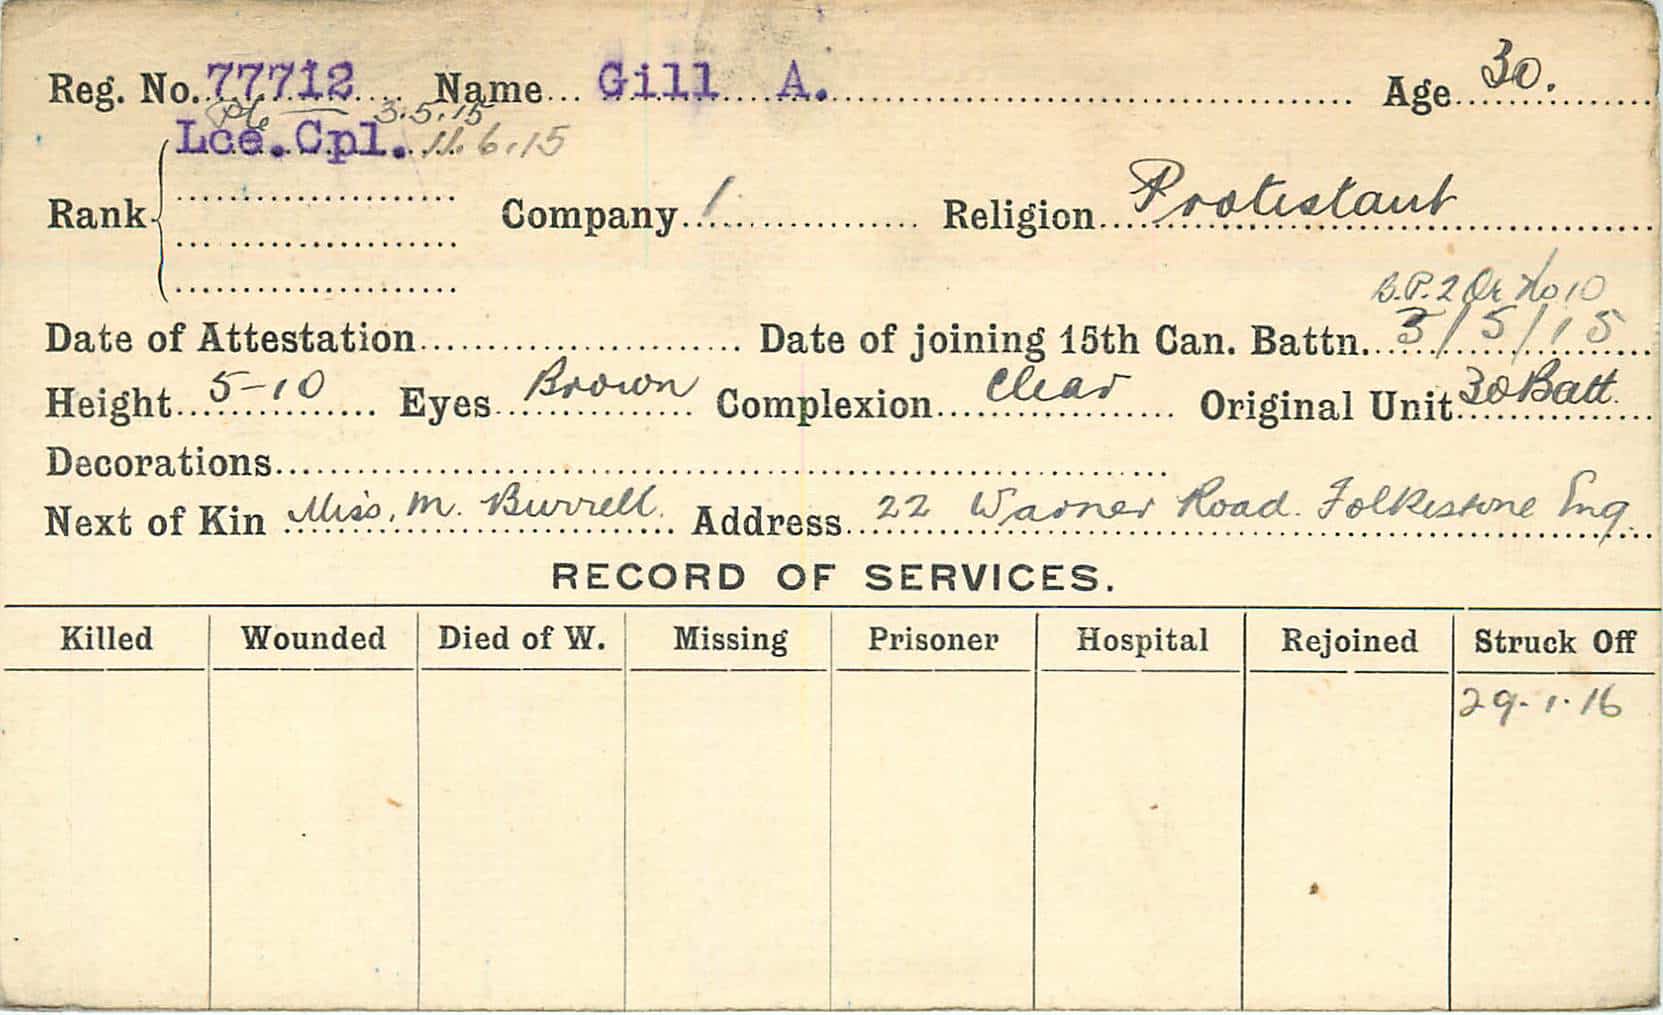 Reg. No. 77712 Name Gill A. Age 30.
Pte 3.5.15
Lce. Cpl. 11.6.15
Rank Company 1 Religion Protestant
B.P.2 Or No 10
Date of Attestation Date of joining 15th Can. Battn. 3/5/15
Height 5-10 Eyes Brown Complexion Clear Original Unit 30 Batt.
Decorations
Next of Kin Miss. M. Burrell. Address 22 Warner Road. Folkestone Eng.
RECORD OF SERVICES.
Killed Wounded Died of W. Missing Prisoner Hospital Rejoined Struck Off
29.1.16